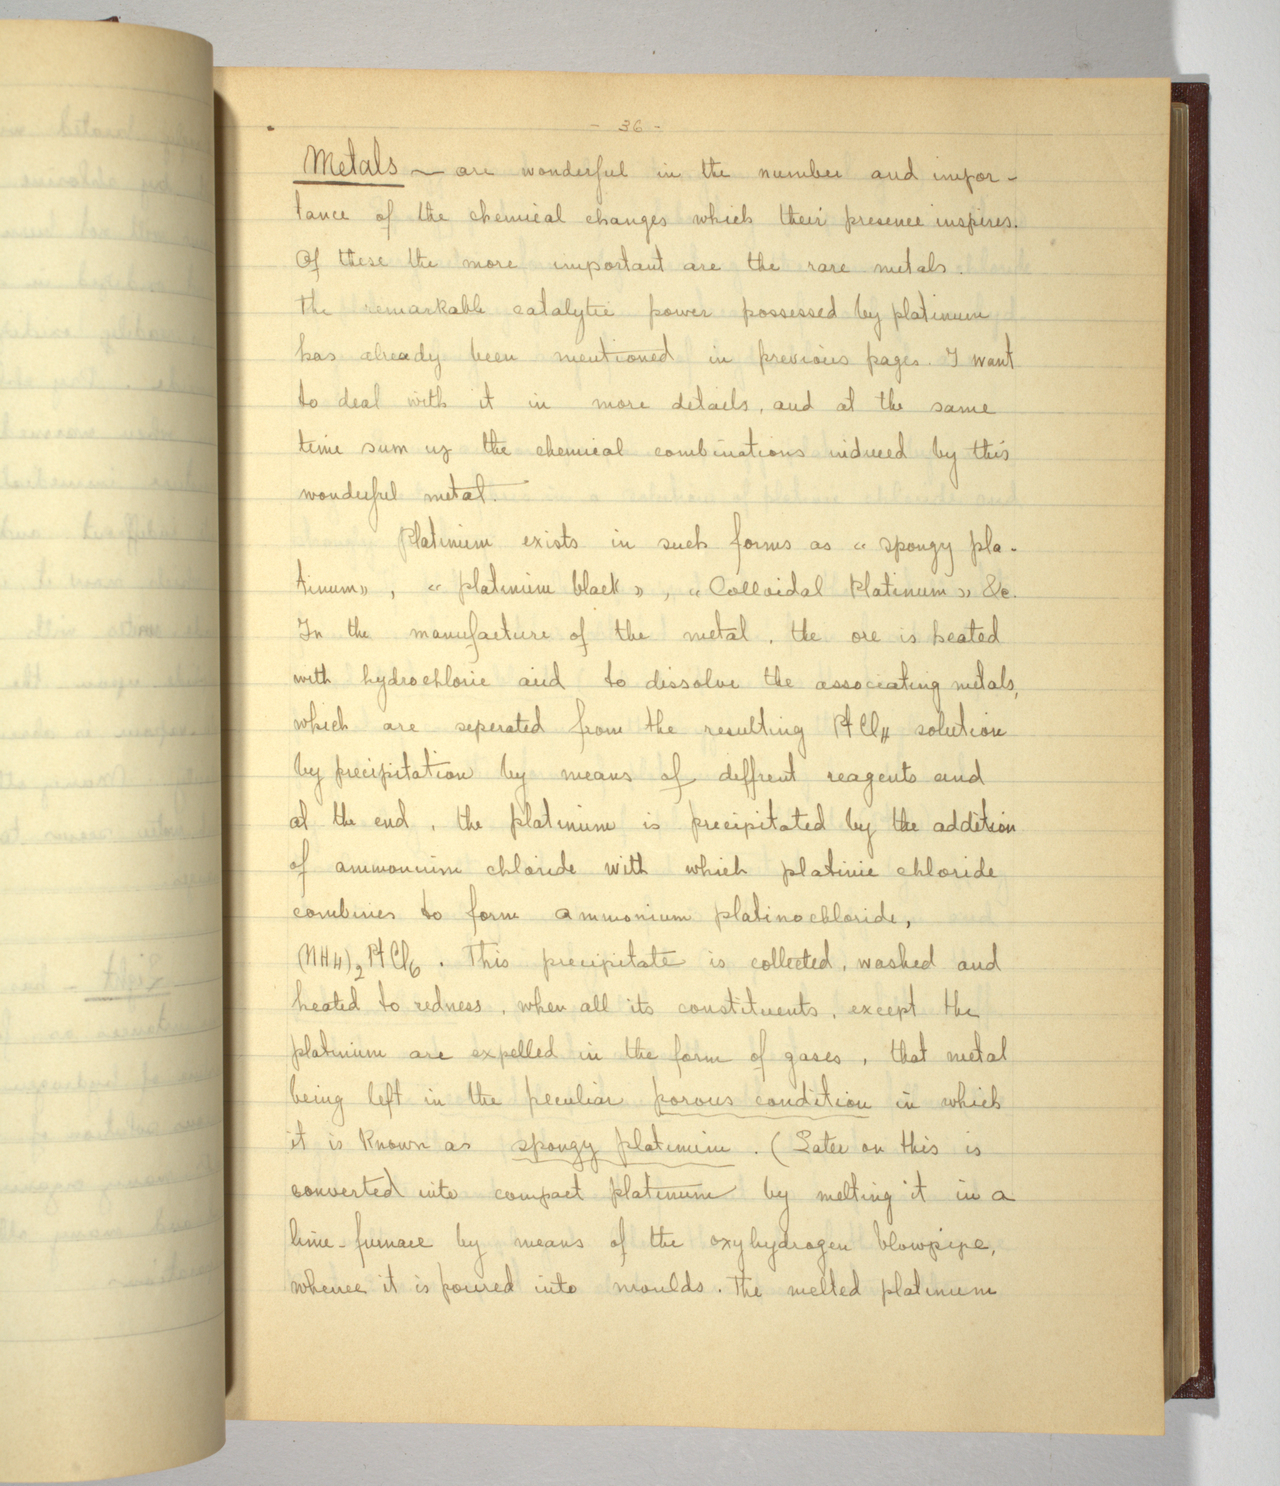 - 36 -
Metals ~ are wonderful in the number and impor-
tance of the chemical changes which their presence inspires.
Of these the more important are the rare metals.
The remarkable catalytic power possessed by platinum
has already been mentioned in previous pages. I want
to deal with it in more details, and at the same
time sum up the chemical combinations induced by this
wonderful metal.
Platinum exists in such forms as « spongy pla-
tinum», « platinum black », « Colloidal Platinum » &c.
In the manufacture of the metal, the ore is heated
with hydrochloric acid to dissolve the associating metals,
which are seperated from the resulting PtCl4 solution
by precipitation by means of diffrent reagents and
at the end, the platinum is precipitated by the addition
of ammonium chloride with which platinic chloride
combines to form ammonium platinochloride,
(NH4)2PtCl6. This precipitate is collected, washed and
heated to redness, when all its constituents, except the
platinum are expelled in the form of gases, that metal
being left in the peculiar porous condition in which
it is Known as spongy platinum. (Later on this is
converted into compact platinum by melting it in a
lime-furnace by means of the oxyhydrogen blowpipe,
whence it is poured into moulds. The melted platinum